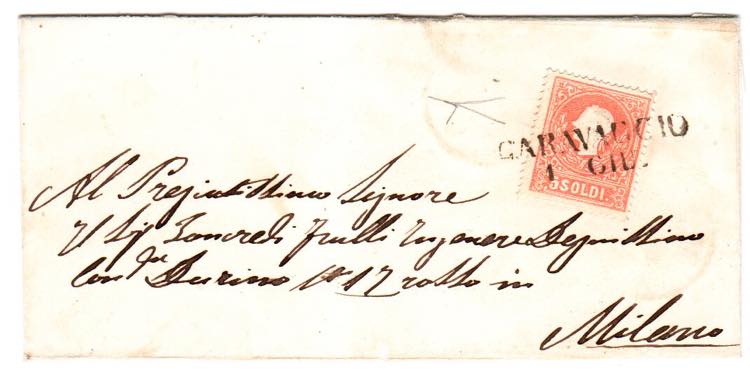 CARAVAGGIO
1 GIU.
5 SOLDI
Al Pregiatissimo Signore
Il Sig Tancredi Ingenere Degnissimo
Con.da Durino N° 17 rosso in
Milano